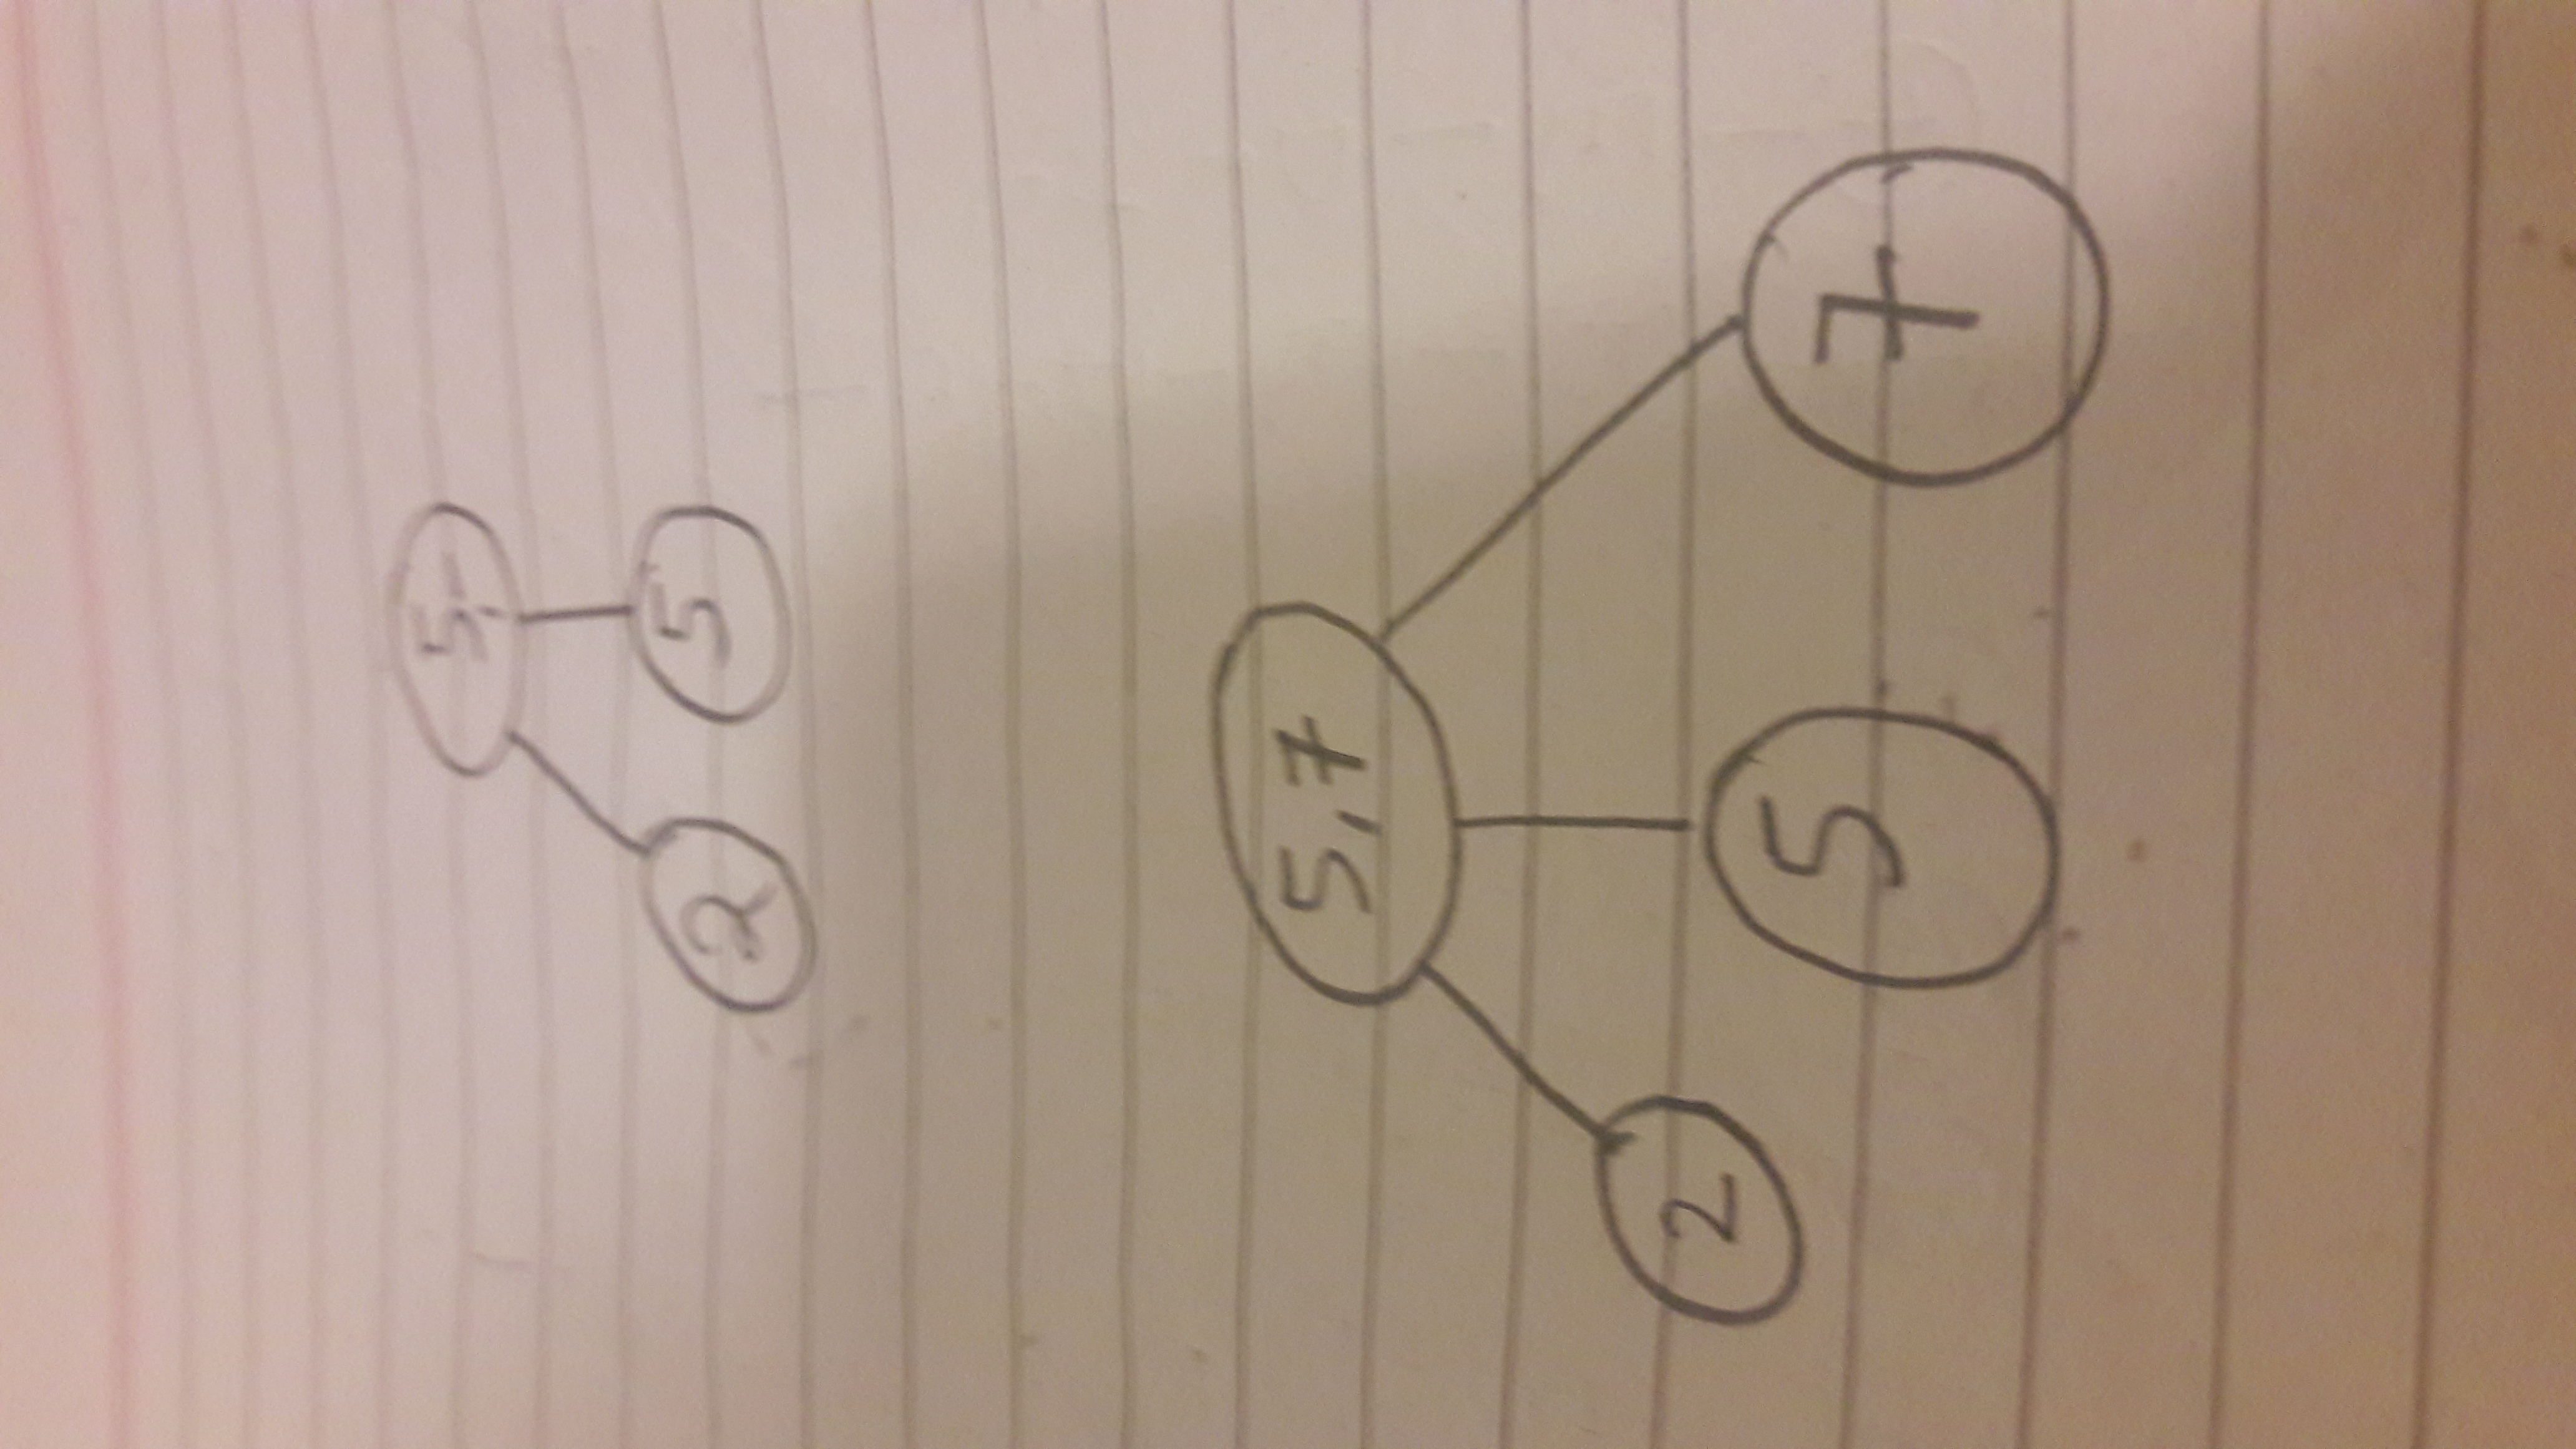 5,-
2 5
5,7
2
5 7